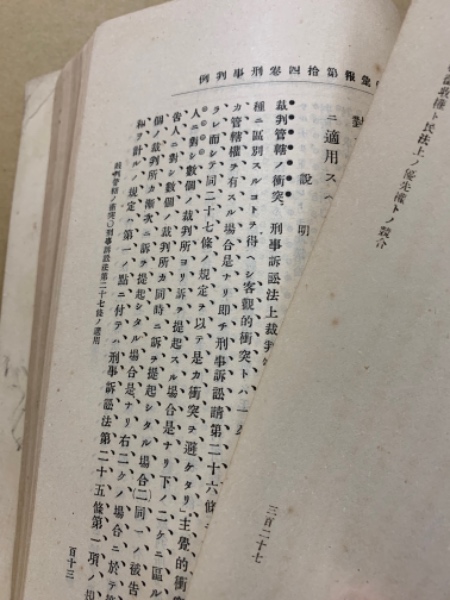 ヽ從裁權ト民法上ノ優先權トノ競合
三百二十七
彙報第拾四卷刑事判例
ニ適用スヘ
說明
裁判管轄ノ衝突、刑事訴訟法上裁判
種ニ區別スルコトヲ得ヘシ客觀的衝突トハ一
カ管轄權ヲ有スル場合是ナリ即チ刑事訴訟法第二十六條
ラレ而シテ同二十七條ノ規定ヲ以テ是カ衝突ヲ避ケタリ」主覺的衝
人ニ對シ數個ノ裁判所ヨリ訴ヲ提起スル場合是ナリ下ノ二ケニ區ル
告人ニ對シ數個ノ裁判所カ同時ニ訴ヲ提起シタル場合(二)同一ノ被告
個ノ裁判所カ漸次ニ訴ヲ提起シタル場合是ナリ右二ケノ場合ニ於テ
和ヲ計ルノ規定ハ第一ノ點ニ付テハ刑事訴訟法第二十五條第一項ノ規
裁判管轄ノ衝突○刑事訴訟法第二十七條ノ適用
百十三